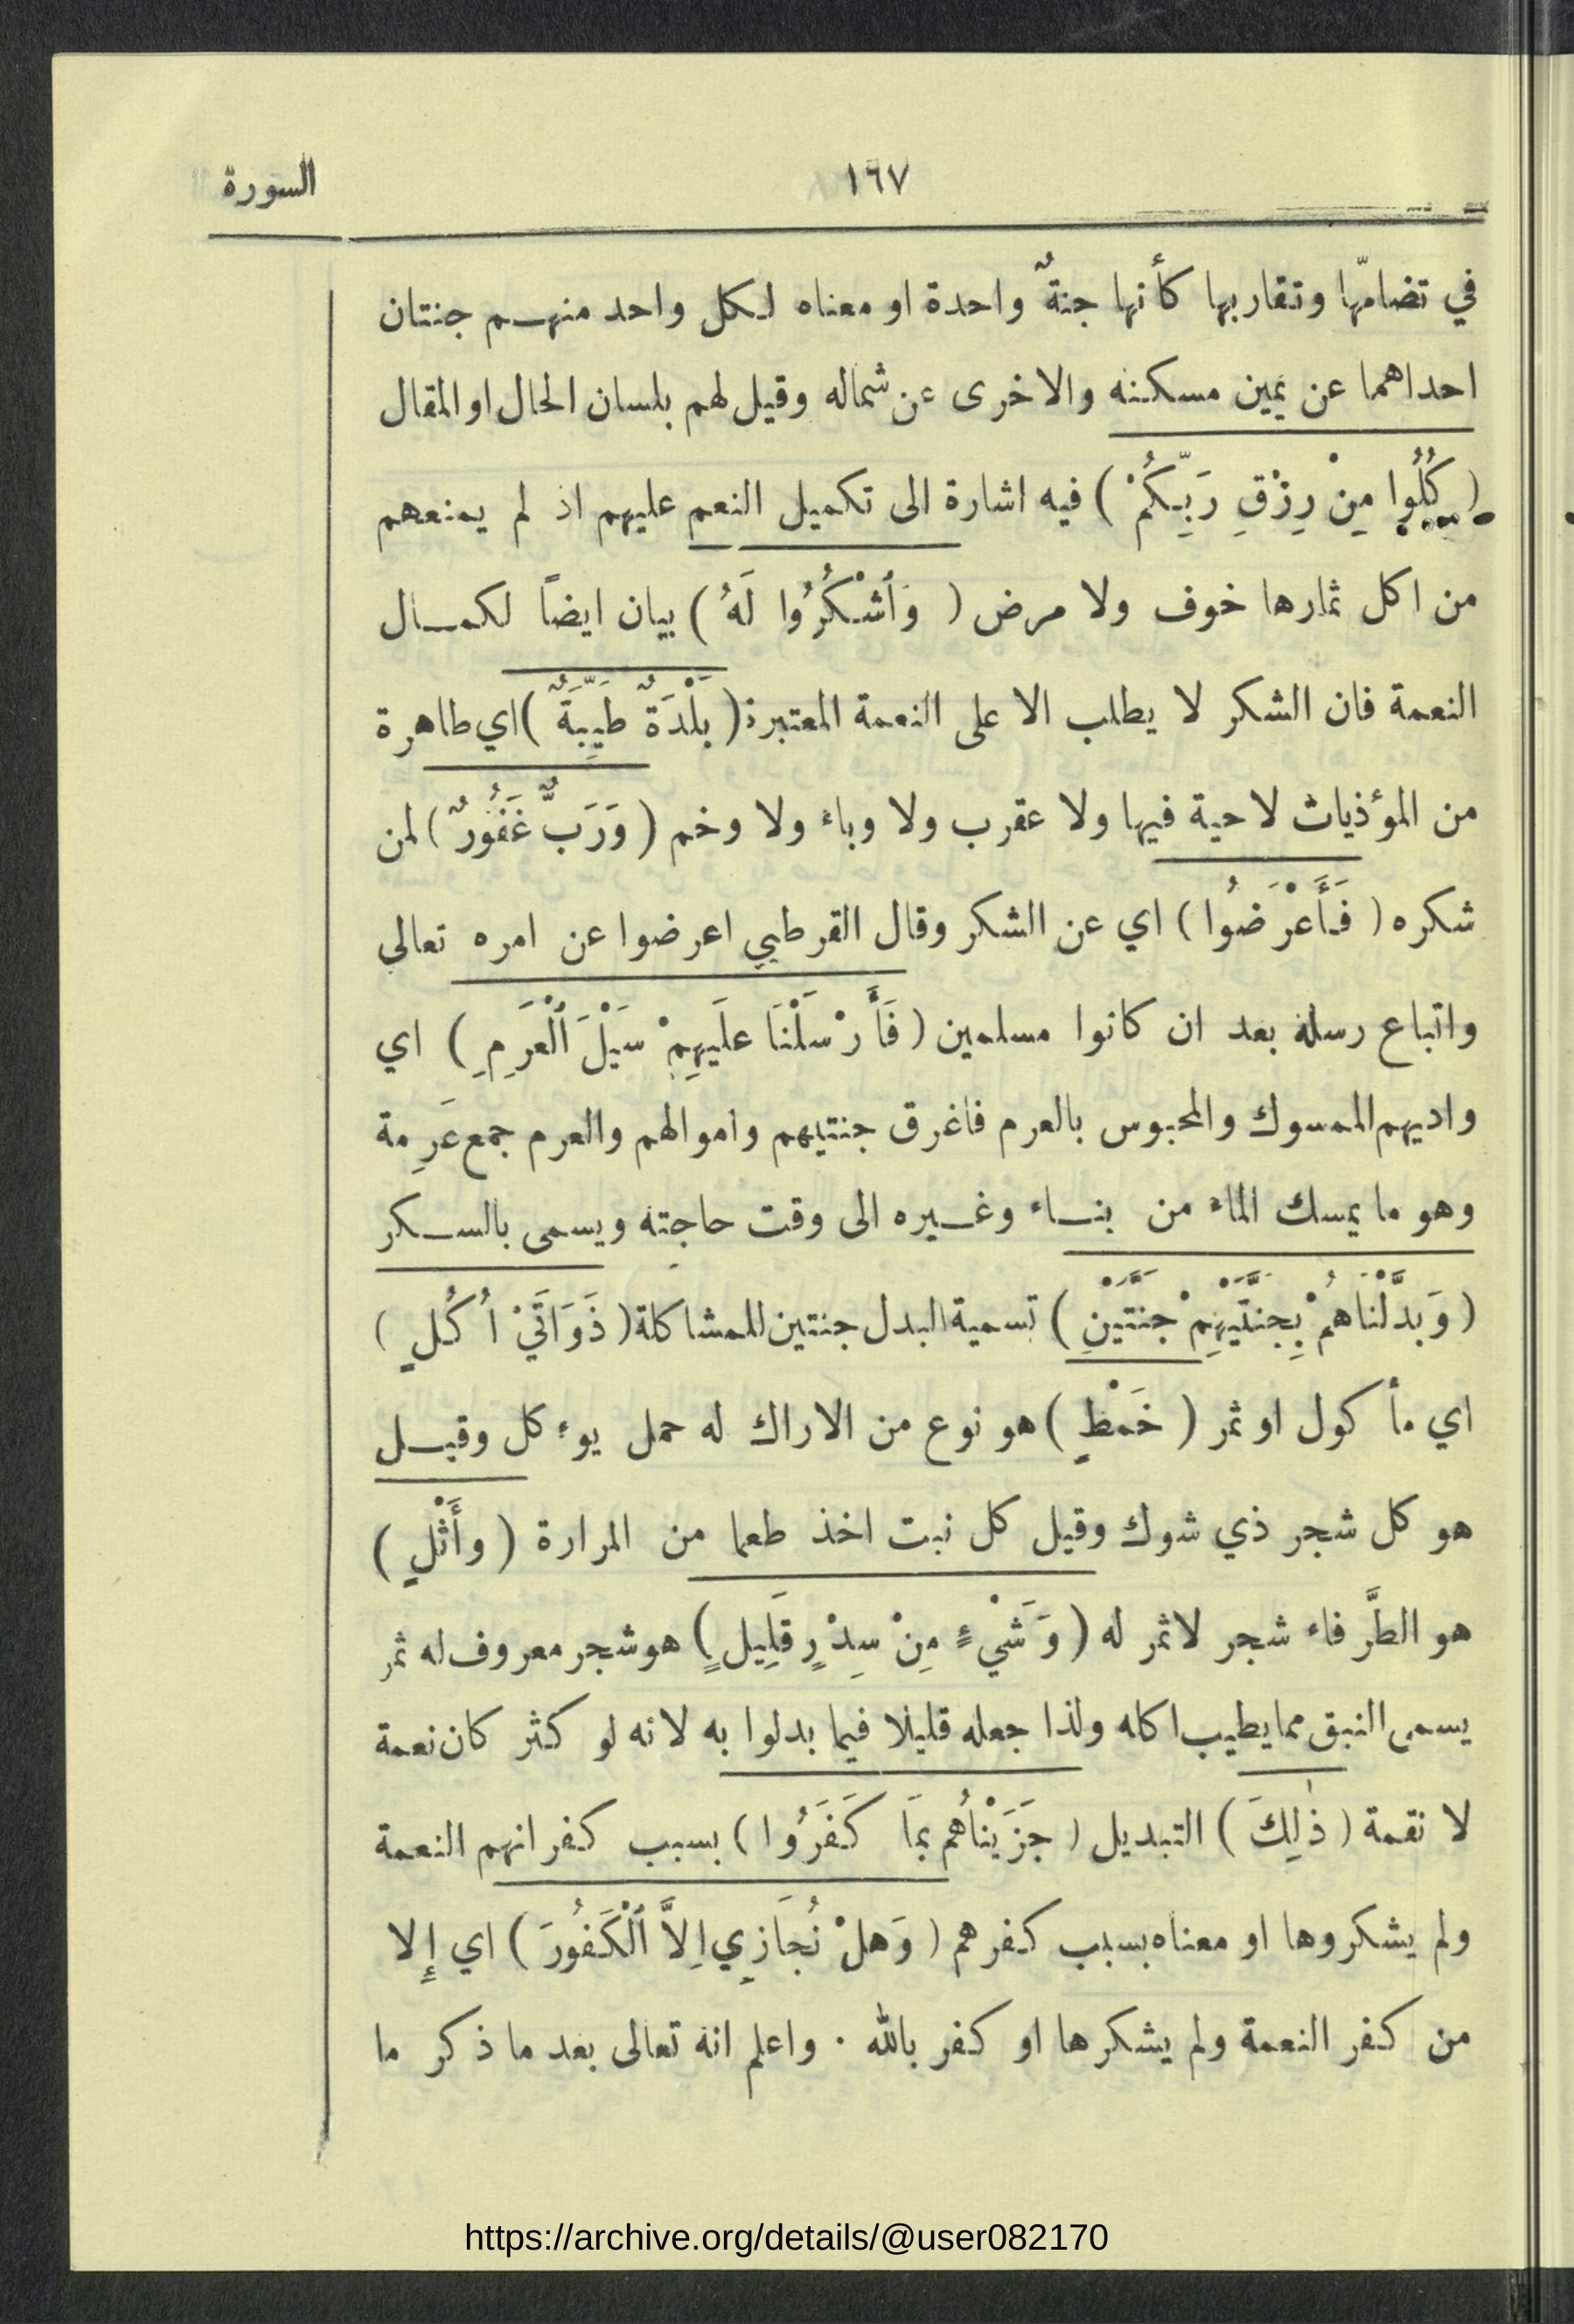 ١٦٧
السورة
في تضامّها وتقاربها كأنها جنةٌ واحدة او معناه لكل واحد منهم جنتان
احداهما عن يمين مسكنه والاخرى عن شماله وقيل لهم بلسان الحال او المقال
( كُلُوا مِنْ رِزْقِ رَبِّكُمْ ) فيه اشارة الى تكميل النعم عليهم اذ لم يمنعهم
من اكل ثمارها خوف ولا مرض ( وَٱشْكُرُوا لَهُ ) بيان ايضاً لكمال
النعمة فان الشكر لا يطلب الا على النعمة المعتبرة ( بَلْدَةٌ طَيِّبَةٌ ) اي طاهرة
من المؤذيات لا حية فيها ولا عقرب ولا وباء ولا وخم ( وَرَبٌّ غَفُورٌ ) لمن
شكره ( فَأَعْرَضُوا ) اي عن الشكر وقال القرطبي اعرضوا عن امره تعالى
واتباع رسله بعد ان كانوا مسلمين ( فَأَرْسَلْنَا علَيهِمْ سَيْلَ ٱلْعَرِمِ ) اي
واديهم الممسوك والمحبوس بالعرم فاغرق جنتيهم واموالهم والعرم جمع عَرِمة
وهو ما يمسك الماء من بناء وغيره الى وقت حاجته ويسمى بالسكر
( وَبَدَّلْنَاهُمْ بِجَنَّتَيْهِمْ جَنَّتَيْنِ ) تسمية البدل جنتين للمشاكلة ( ذَوَاتَيْ أُكُلٍ )
اي مأكول او ثمر ( خَمْطٍ ) هو نوع من الاراك له حمل يوءكل وقيل
هو كل شجر ذي شوك وقيل كل نبت اخذ طعما من المرارة ( وأَثْلٍ )
هو الطَّرفاء شجر لا ثمر له ( وَشَيْءٍ مِنْ سِدْرٍ قَلِيلٍ ) هو شجر معروف له ثمر
يسمى النبق مما يطيب اكله ولذا جعله قليلا فيما بدلوا به لانه لو كثر كان نعمة
لا نقمة ( ذٰلِكَ ) التبديل ( جَزَيْنَاهُم بِمَا كَفَرُوا ) بسبب كفرانهم النعمة
ولم يشكروها او معناه بسبب كفرهم ( وَهلْ نُجَازِي اِلاَّ ٱلْكَفُورَ ) اي إِلا
من كفر النعمة ولم يشكرها او كفر بالله ٠ واعلم انه تعالى بعد ما ذكر ما
https://archive.org/details/@user082170